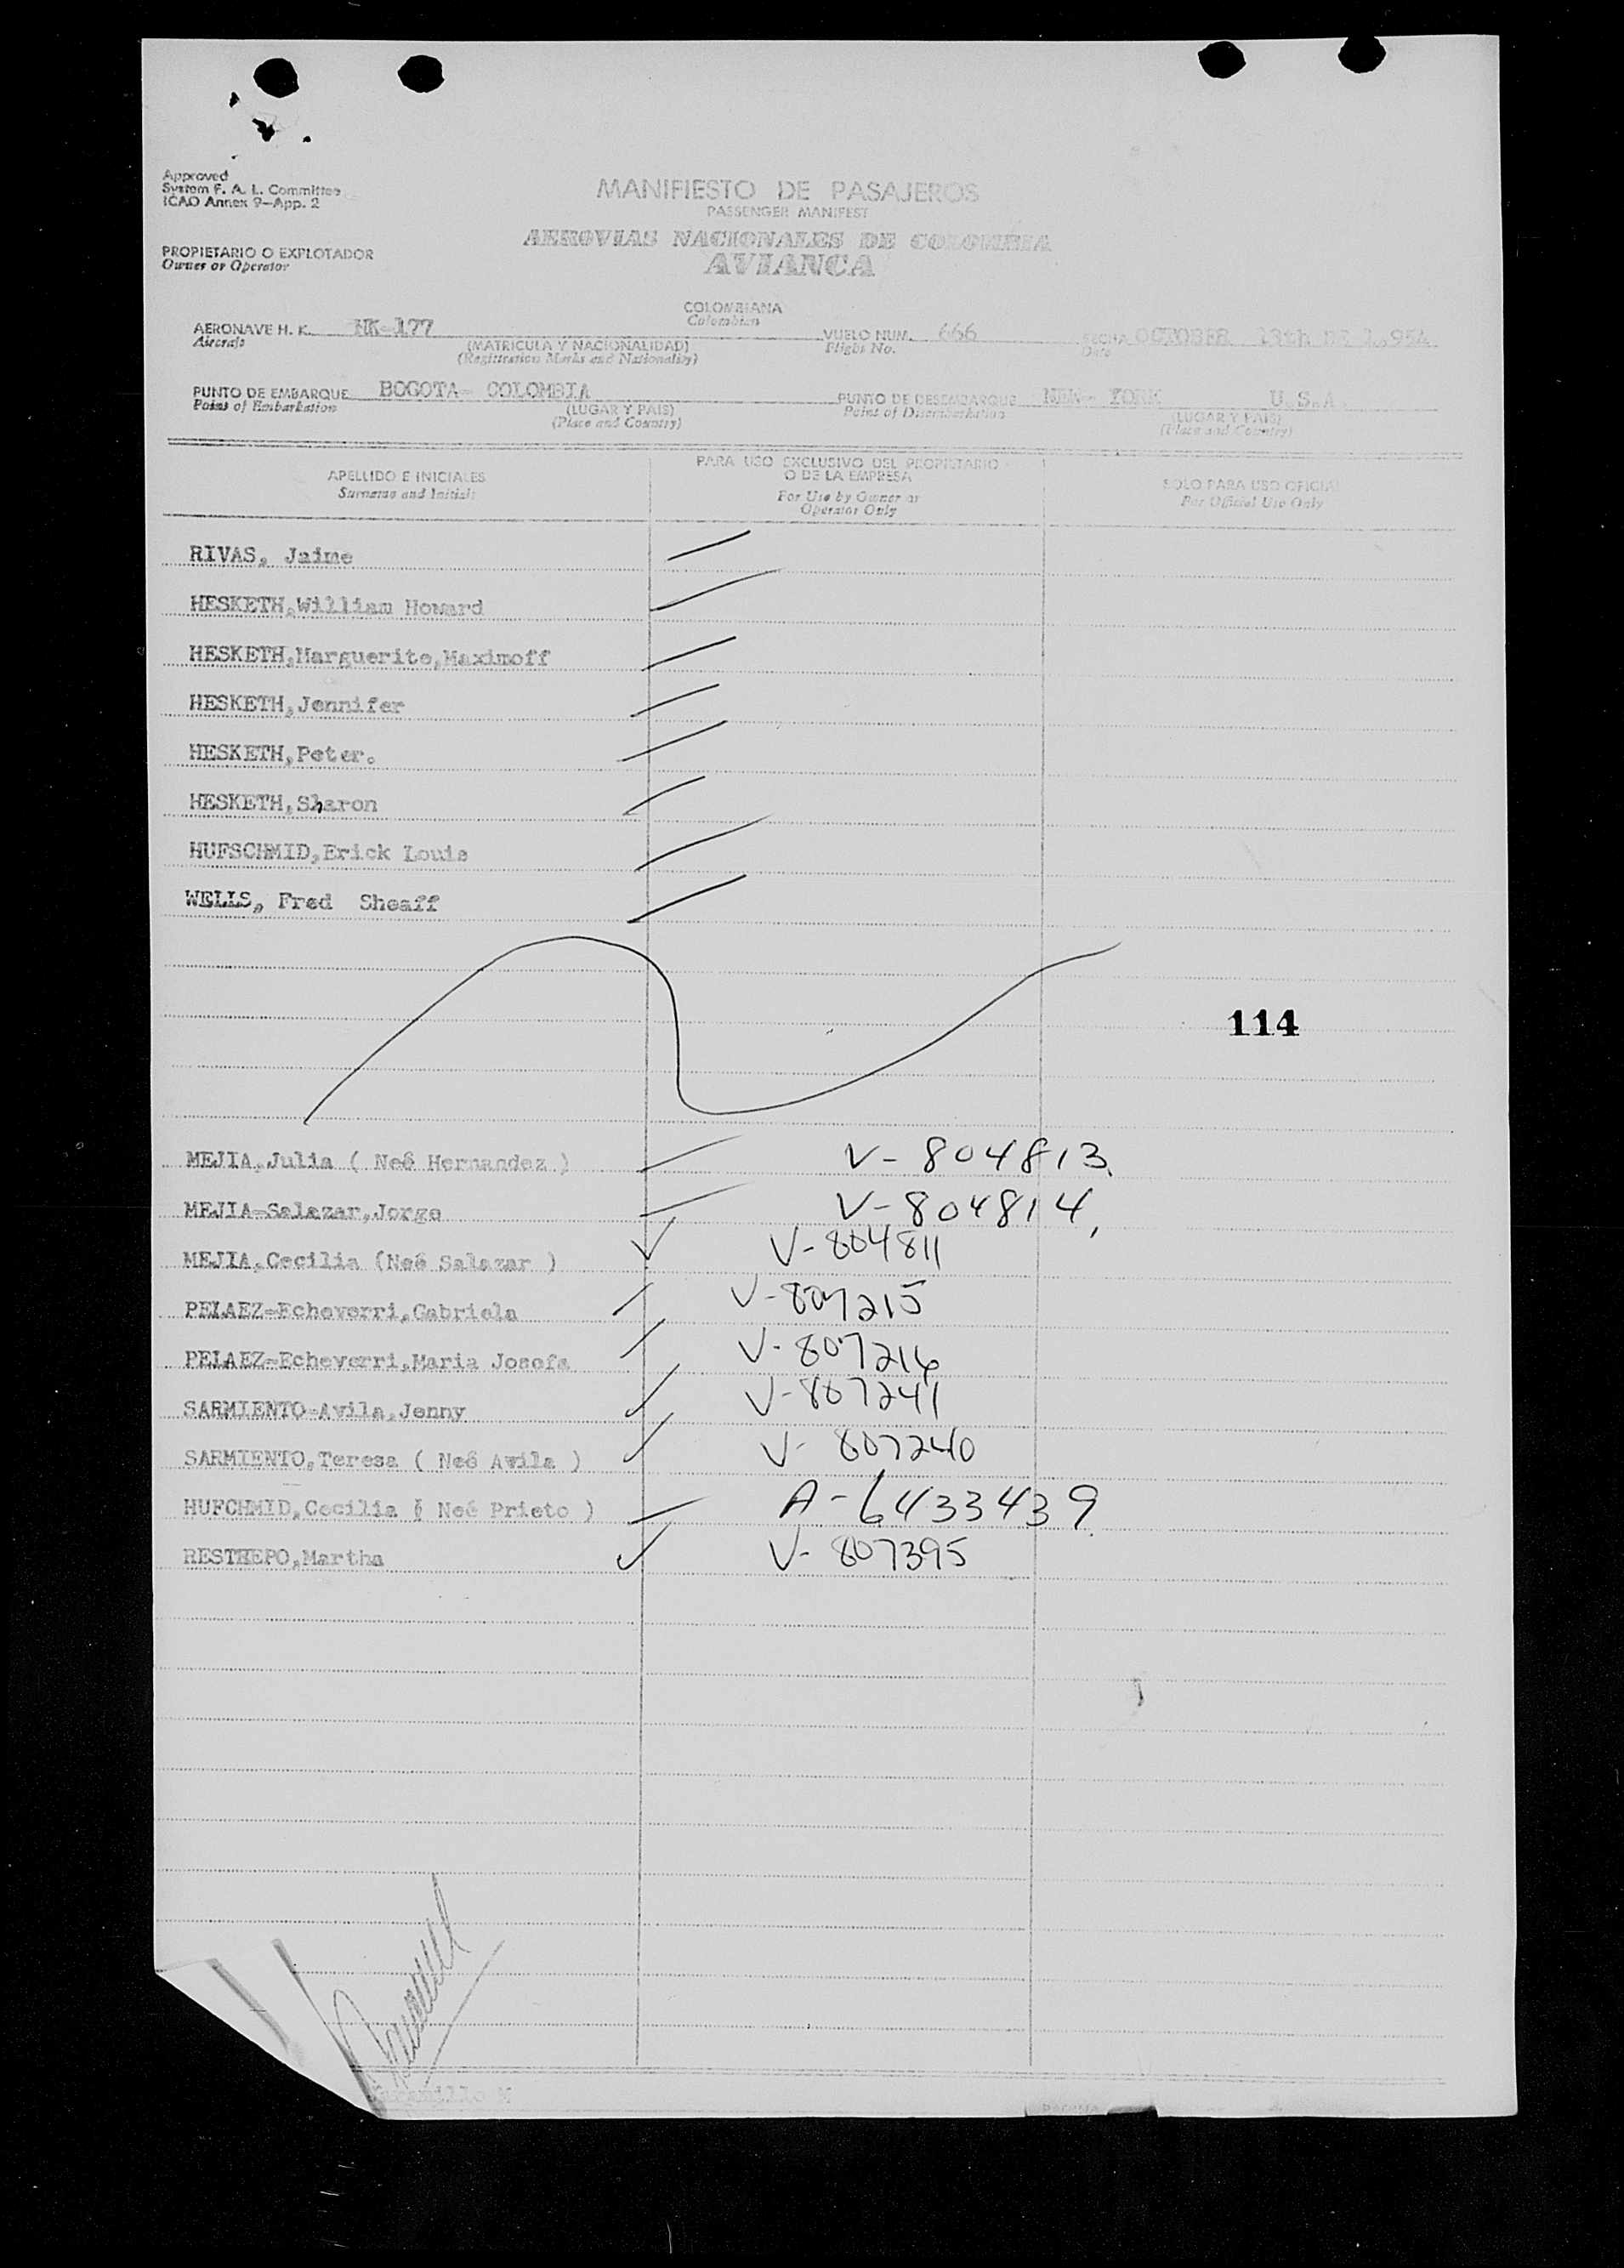 Approved
System F. A. L. Committee
ICAO Annex 9-App. 2
MANIFIESTO DE PASAJEROS
PASSENGER MANIFEST
AEROVIAS NACIONALES DE COLOMBIA
AVIANCA
PROPIETARIO O EXPLOTADOR
Owner or Operator
COLOMBIANA
Colombian
AERONAVE H. K. HK-177 VUELO NUM. 666 FECHA OCTOBER 13th DE 1.954
Aircraft (MATRICULA Y NACIONALIDAD) Flight No. Date
(Registration Marks and Nationality)
PUNTO DE EMBARQUE BOGOTA- COLOMBIA PUNTO DE DESEMBARQUE NEW- YORK U.S.A.
Point of Embarkation (LUGAR Y PAIS) Point of Disembarkation (LUGAR Y PAIS)
(Place and Country) (Place and Country)
APELLIDO E INICIALES PARA USO EXCLUSIVO DEL PROPIETARIO O DE LA EMPRESA SOLO PARA USO OFICIAL
Surname and Initials For Use by Owner or Operator Only For Official Use Only
RIVAS, Jaime
HESKETH,William Howard
HESKETH,Marguerite,Maximoff
HESKETH,Jennifer
HESKETH,Peter.
HESKETH,Sharon
HUFSCHMID,Erick Louis
WELLS, Fred Sheaff
114
MEJIA,Julia ( Neé Hernandez ) V-804813.
MEJIA-Salazar,Jorge V-804814,
MEJIA,Cecilia (Neé Salazar ) V-804811
PELAEZ-Echeverri,Gabriela V-807215
PELAEZ-Echeverri,Maria Josefa V-807216
SARMIENTO-Avila,Jenny V-807241
SARMIENTO,Teresa ( Neé Avila ) V-807240
HUFCHMID,Cecilia ( Neé Prieto ) A-6433439
RESTREPO,Martha V-807395